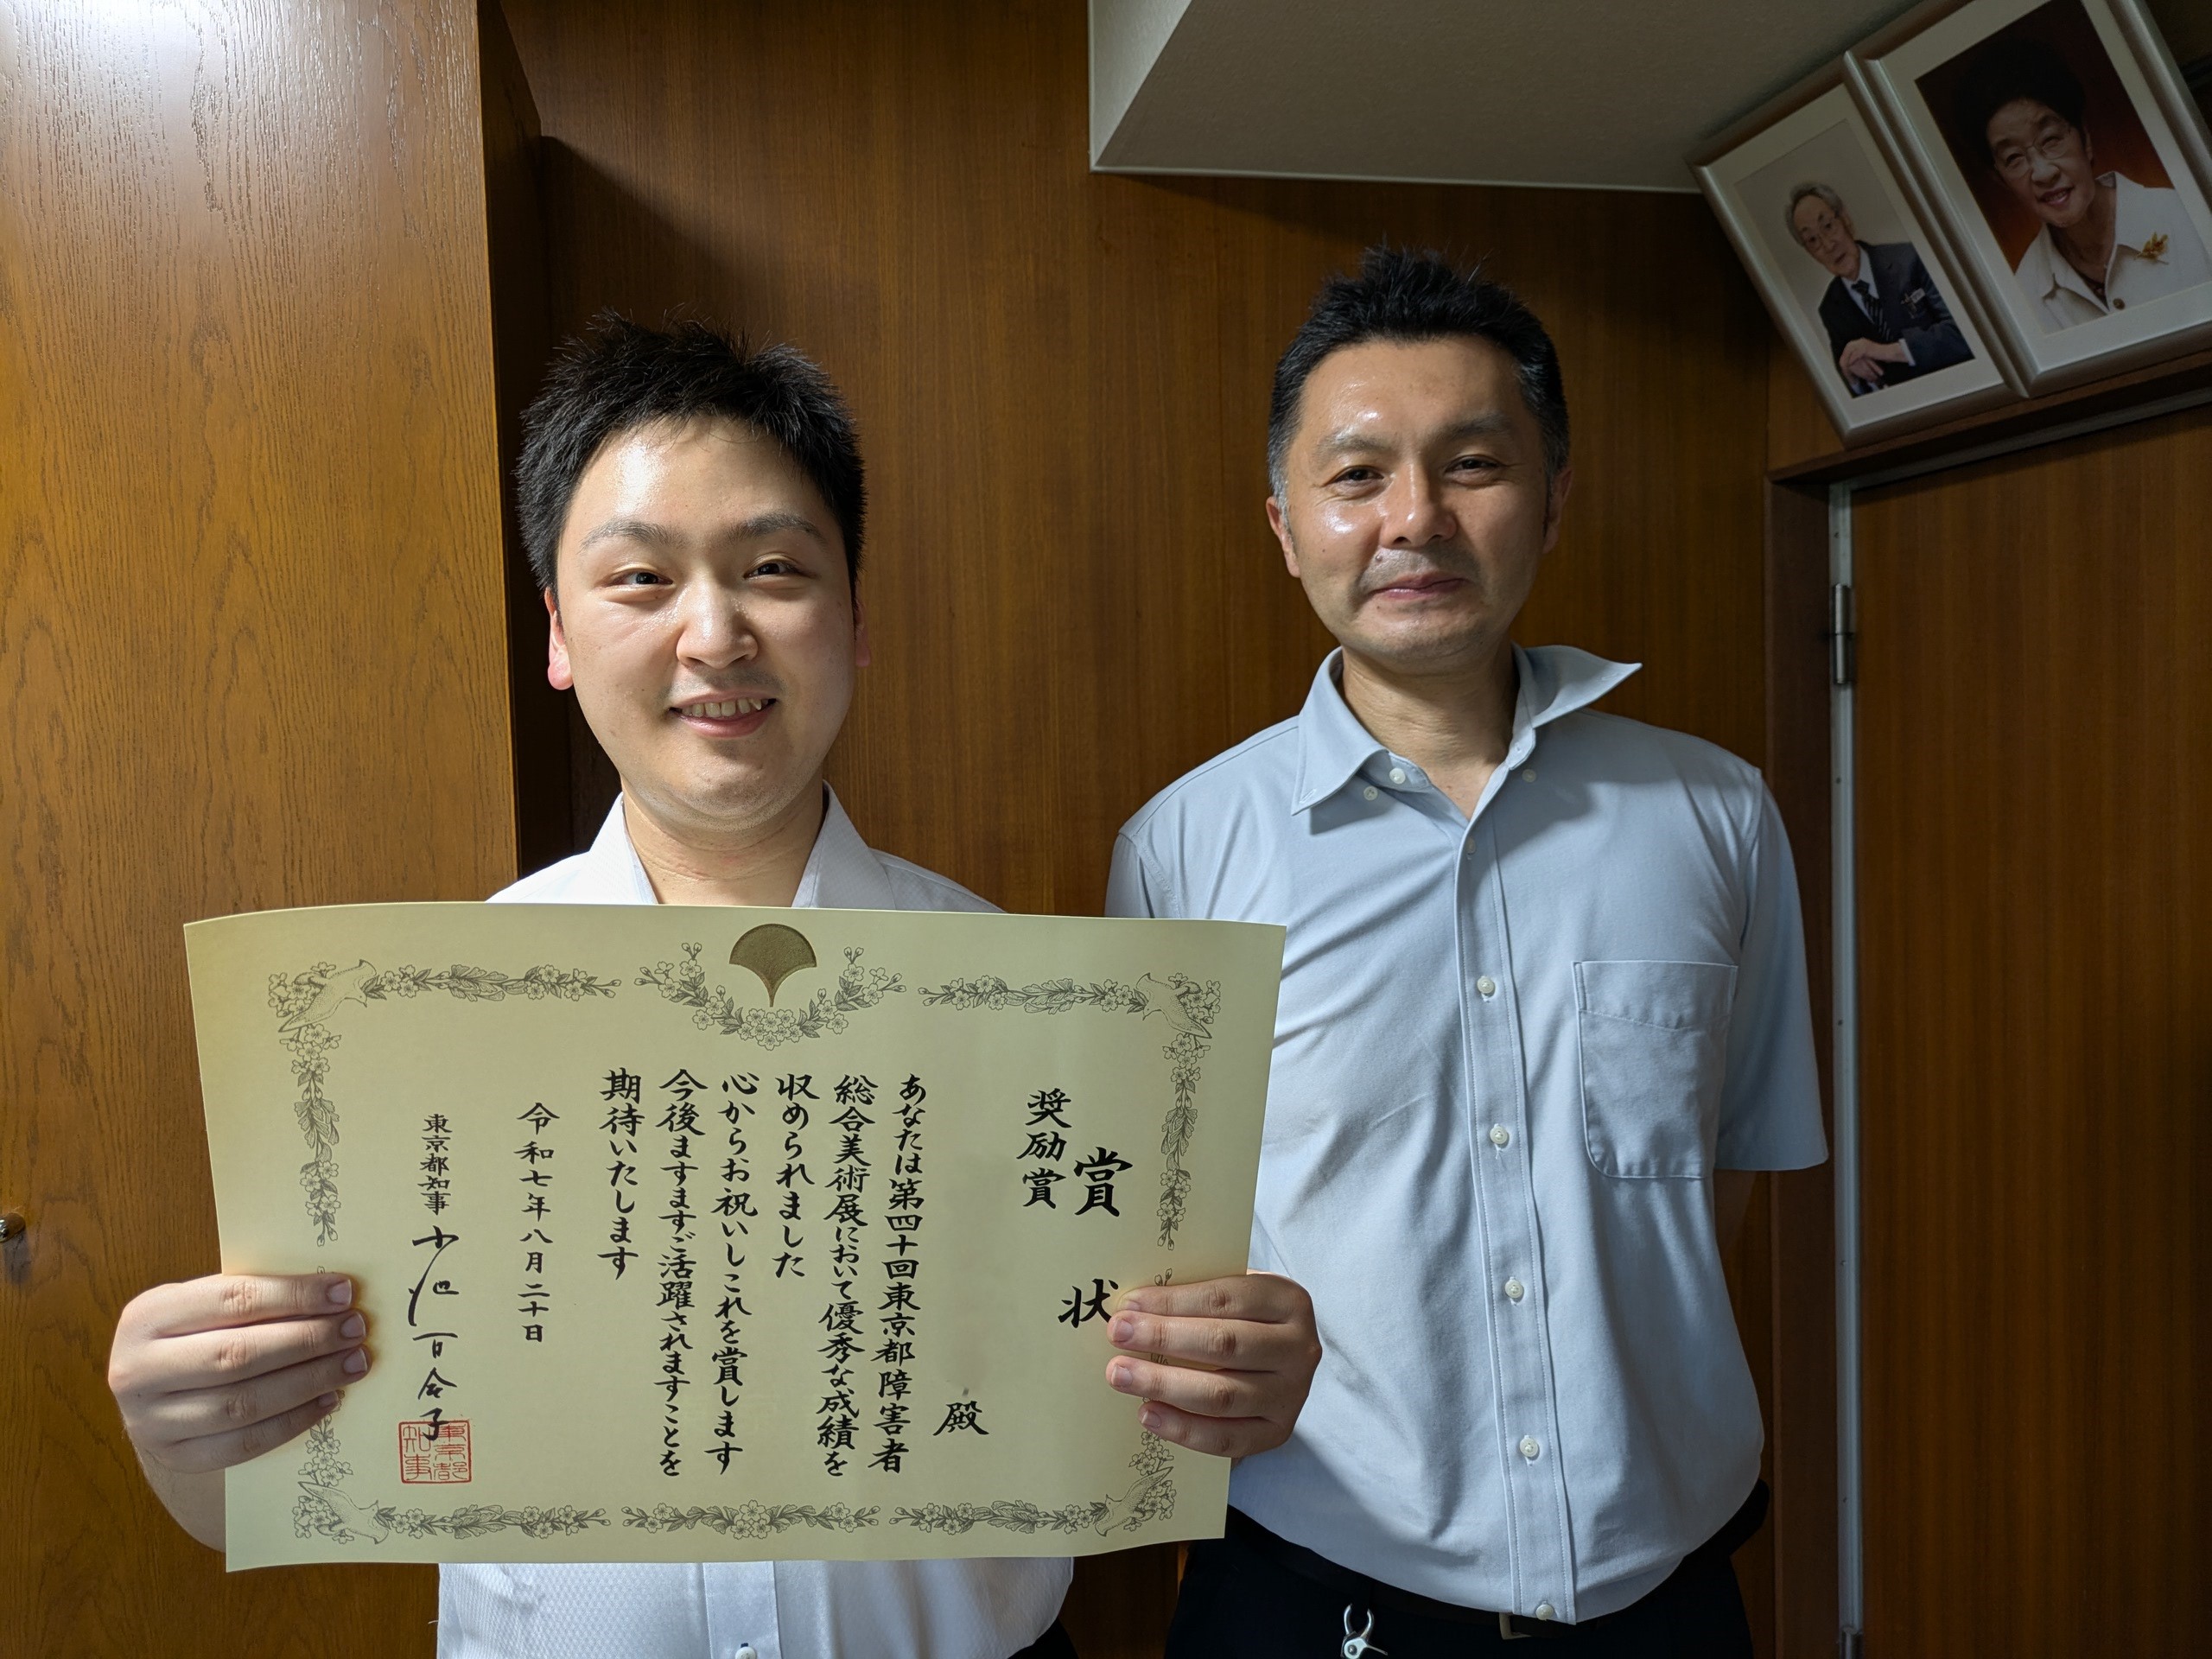 賞状
奨励賞
殿
あなたは第四十回東京都障害者
総合美術展において優秀な成績を
収められました
心からお祝いしこれを賞します
今後ますますご活躍されますことを
期待いたします
令和七年八月二十日
東京都知事 小池百合子
東京都
知事